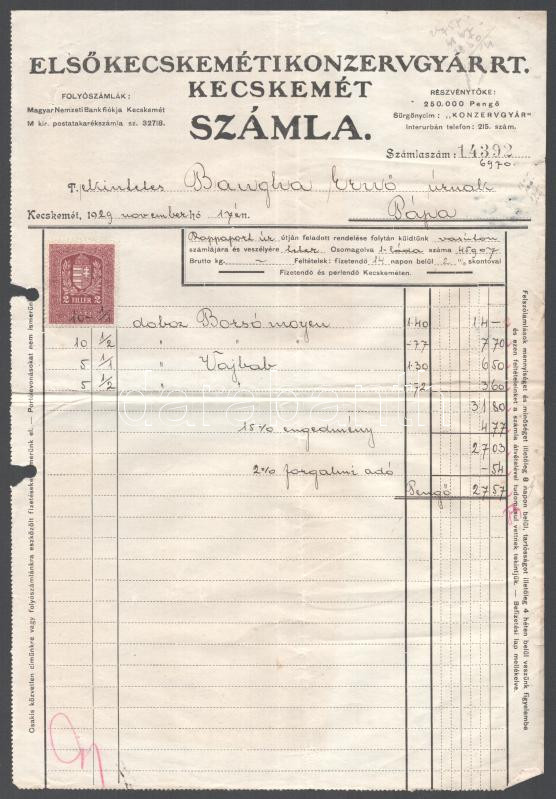 ELSŐ KECSKEMÉTI KONZERVGYÁR RT.
KECSKEMÉT
FOLYÓSZÁMLÁK:
Magyar Nemzeti Bank fiókja Kecskemét
M kir. postatakarékszámla sz. 32718.
SZÁMLA.
RÉSZVÉNYTŐKE:
250.000 Pengő
Sürgönycim: „KONZERVGYÁR"
Interurbán telefon: 215. szám.
Számlaszám: 14392
6970
T. ekintetes Bangha Ernő úrnak
Kecskemét, 1929 november hó 17én.
Pápa
Rappaport úr útján feladott rendelése folytán küldtünk vasúton
számlájára és veszélyére Csomagolva 1 láda száma 45907
Brutto kg. – Feltételek: fizetendő 14 napon belül 2 % skontóval
Fizetendő és perlendő Kecskeméten.
2 FILLÉR 2
10 1/1 doboz Borsó 1·40 14 –
10 1/2 " " " –·77 7 70
5 1/1 " Vajbab 1·30 6 50
5 1/2 " " –·72 3 60
31 80
15% engedmény 4 77
27 03
2% forgalmi adó – 54
Pengő 27 57
Csakis közvetlen címünkre vagy folyószámlánkra eszközölt fizetéseket ismerünk el. — Portólevonásokat nem ismerünk
Felszólamlások mennyiséget és minőséget illetőleg 8 napon belül, tartósságot illetőleg 4 héten belül veszünk figyelembe
és ezen feltételeinket a számla átvételével tudomásul vettnek tekintjük. — Befizetési lap mellékelve.